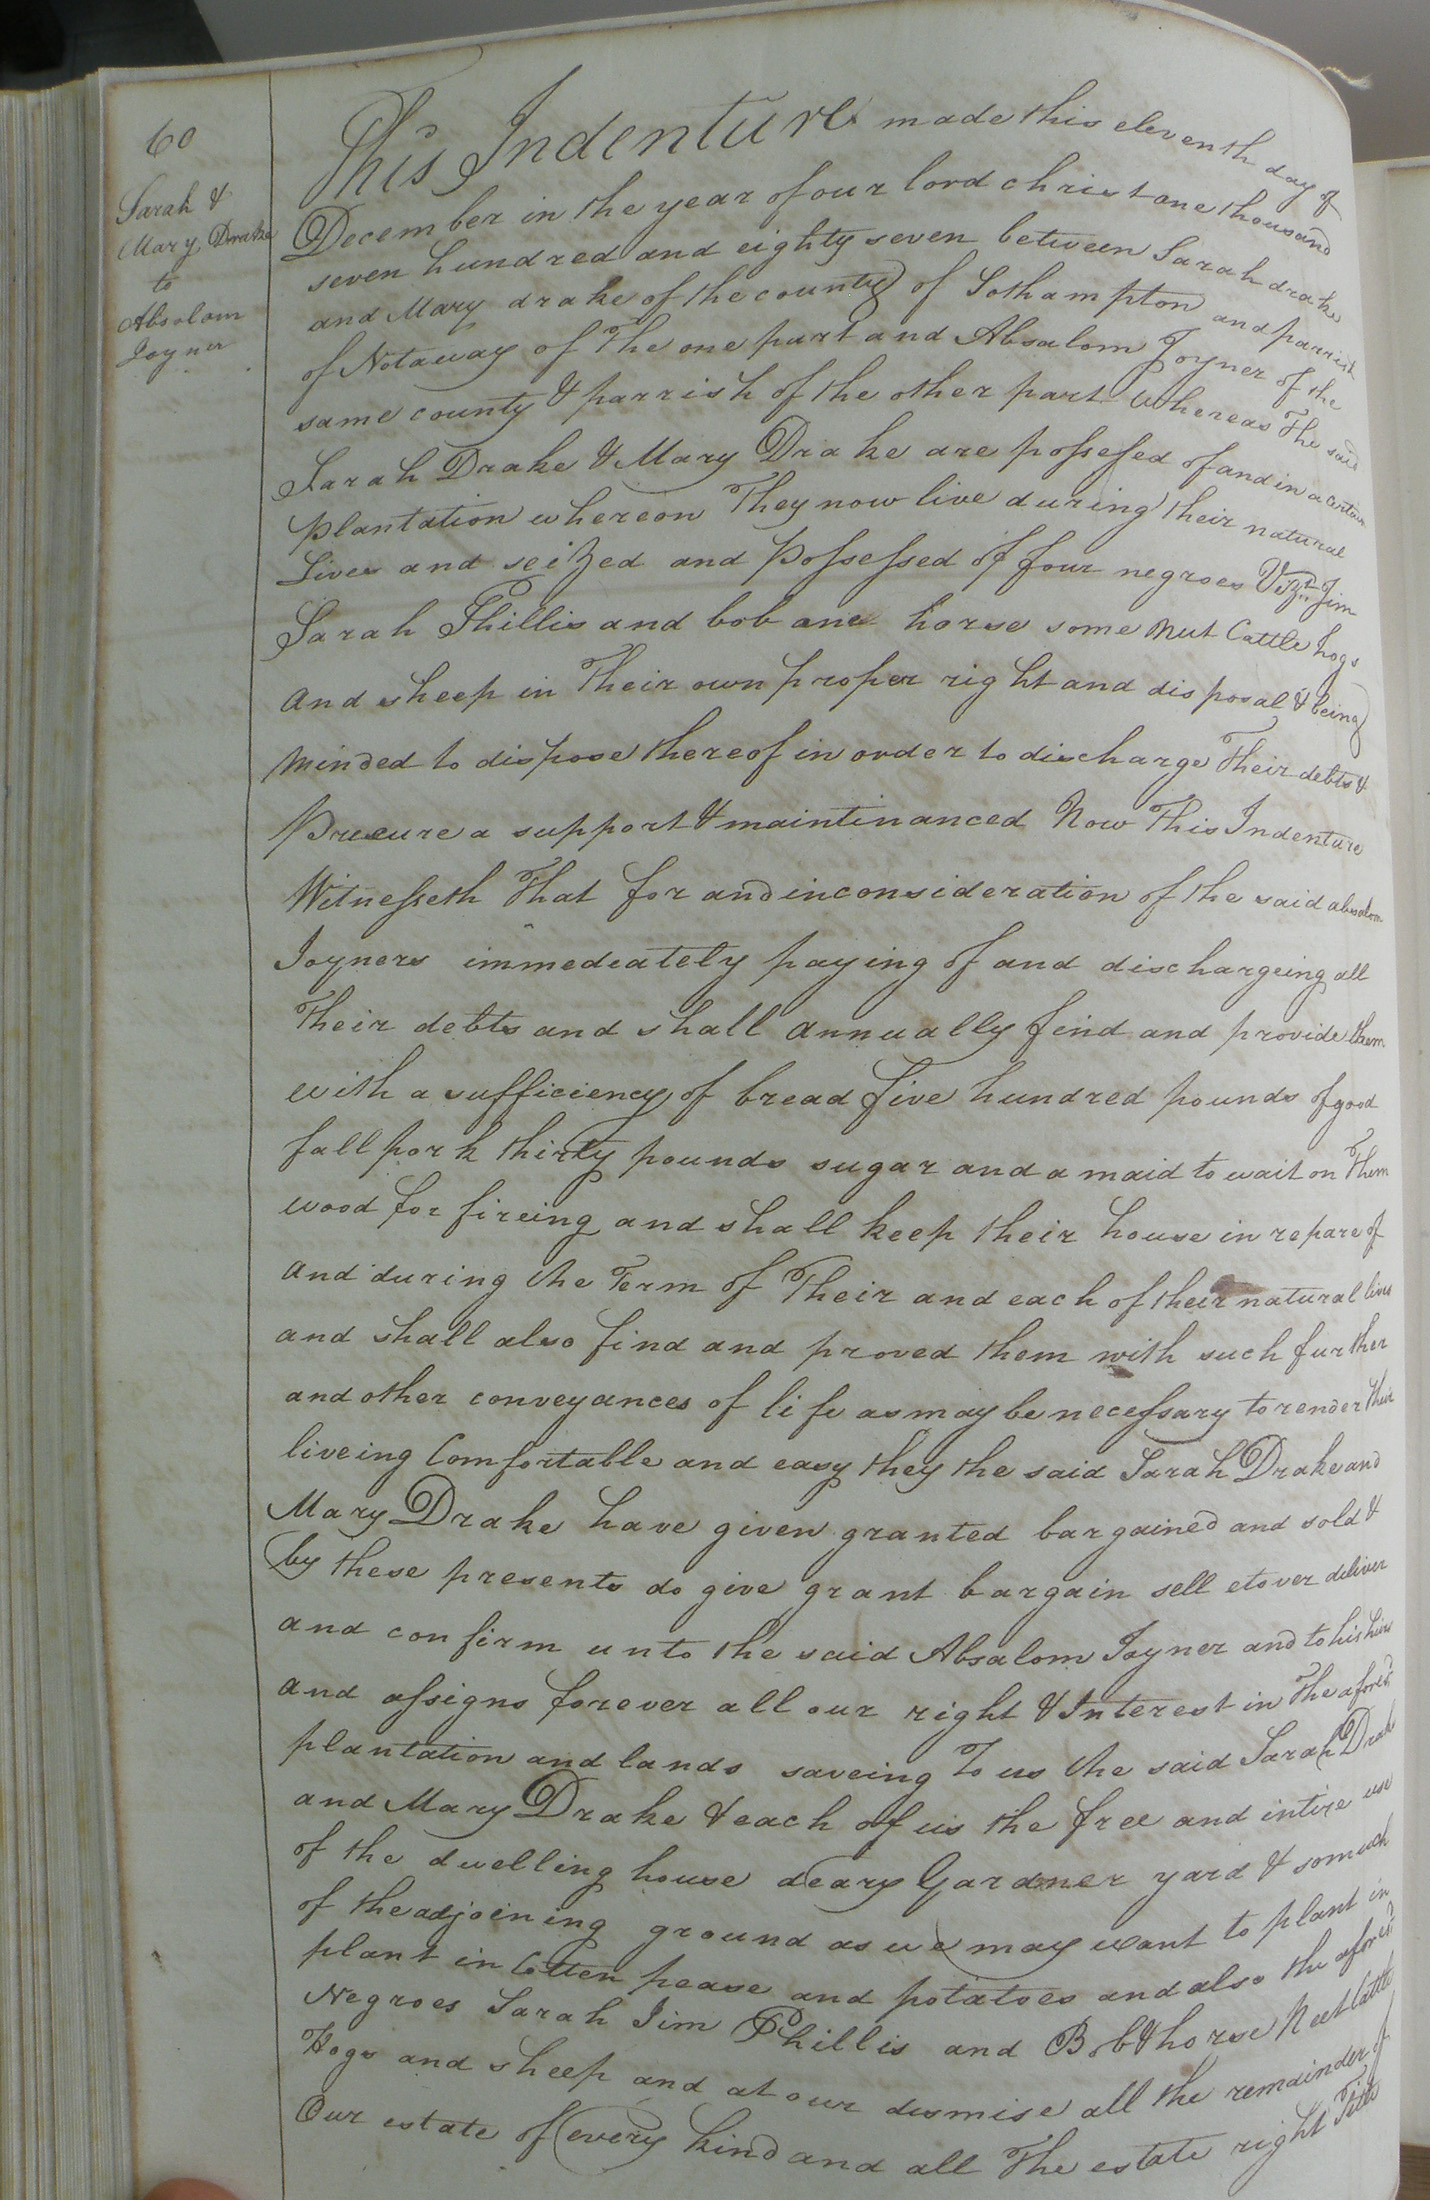 60
Sarah &
Mary Drake
to
Absolom
Joyner
This Indenture made this eleventh day of
December in the year of our lord christ one thousand
seven hundred and eighty seven between Sarah drake
and Mary drake of the county of Sothampton and parrish
of Notaway of The one part and Absalom Joyner of the
same county & parrish of the other part Whereas The said
Sarah Drake & Mary Drake are possesed of and in a certain
plantation whereon They now live during their natural
Lives and seized and possessed of four negroes Vizt Jim
Sarah Phillis and bob one horse some nut Cattle hogs
and sheep in Their own proper right and disposal & being
minded to dispose thereof in order to discharge Their debts &
Precure a support & maintinanced Now This Indenture
Witnesseth That for and in consideration of the said absalom
Joyners immedeately paying of and dischargeing all
Their debts and shall annually find and provide them
with a sufficiency of bread five hundred pounds of good
fall pork thirty pounds sugar and a maid to wait on Them
wood for fireing and shall keep their house in repare of
and during the Term of Their and each of their natural lives
and shall also find and proved them with such further
and other conveyances of life as may be necessary to render their
liveing Comfortable and easy they the said Sarah Drake and
Mary Drake have given granted bargained and sold &
by these presents do give grant bargain sell etover deliver
and confirm unto the said Absalom Joyner and to his hiers
and assigns forever all our right & Interest in The aforesd
plantation and lands saveing To us the said Sarah Drake
and Mary Drake & each of us the free and intire use
of the dwelling house deary Gardner yard & so much
of the adjoining ground as we may want to plant in
plant in Cotten pease and potatoes and also the aforesd
Negroes Sarah Jim Phillis and Bob & horse Neet Cattle
Hogs and sheep and at our dismise all the remainder of
Our estate of every kind and all The estate right Title